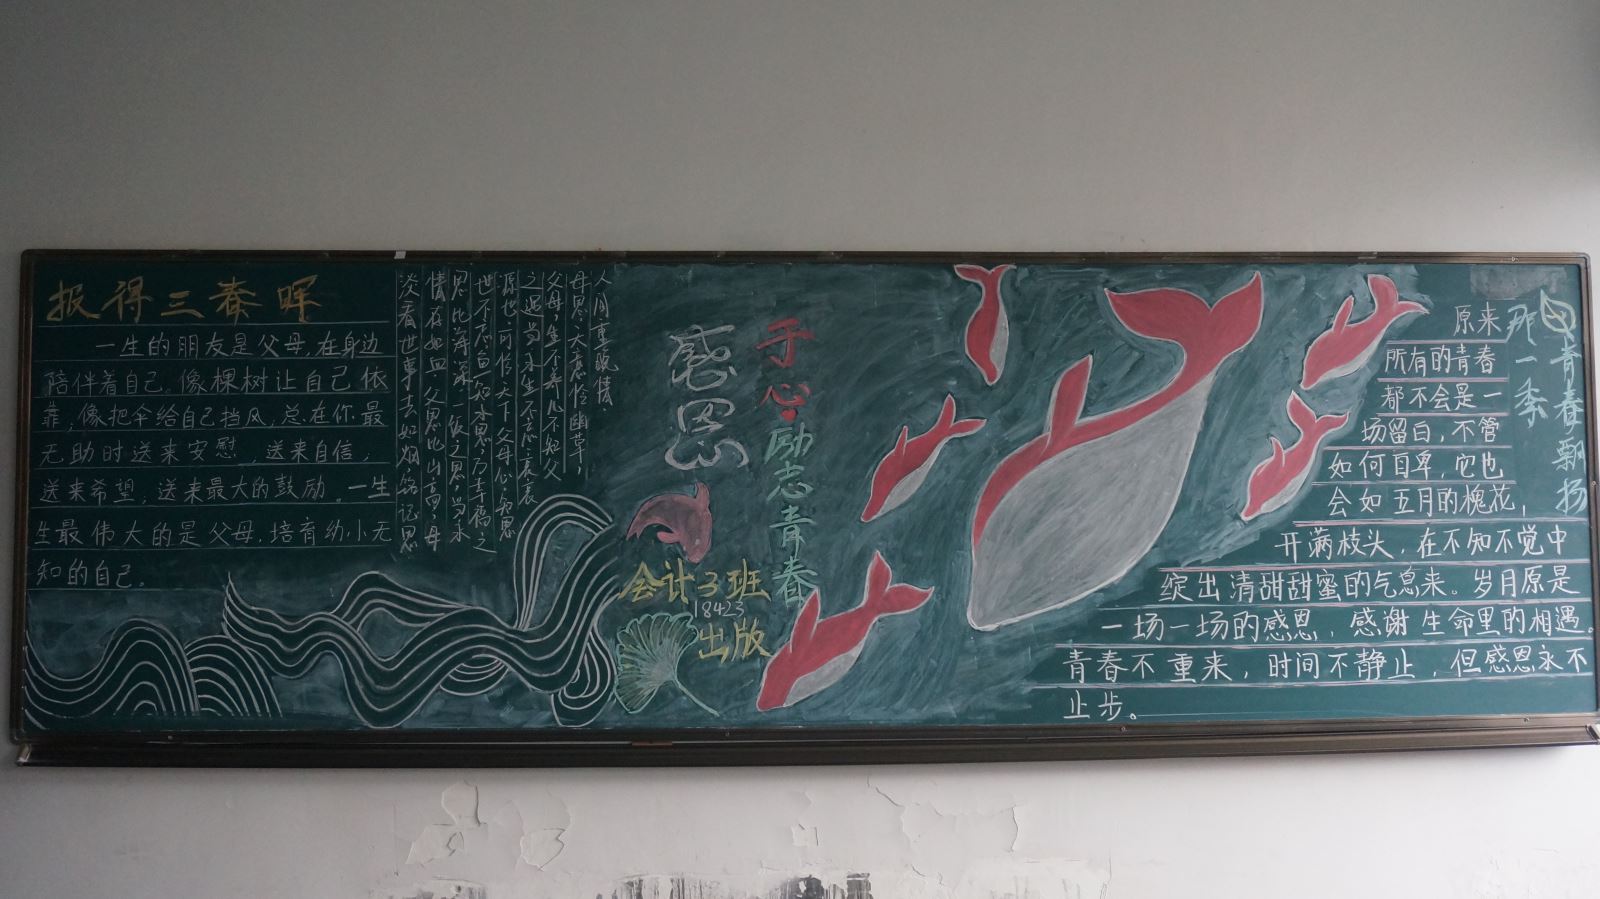 报得三春晖
一生的朋友是父母,在身边
陪伴着自己。像棵树让自己依
靠,像把伞给自己挡风,总在你最
无助时送来安慰,送来自信,
送来希望,送来最大的鼓励。一生
生最伟大的是父母,培育幼小无
知的自己。
母恩大意怜幽草,
父母,生不养儿不知父
之遇当永生不忘
源也,可怜天下父母心,知恩
世不忘鱼知水恩,乃幸福之
恩比海深。一饭之恩,当永
情在如血,父恩比山高,母
淡看世事去如烟,铭记恩
感恩
于心
励志青春
会计3班
18423
出版
那一季青春飘扬
原来
所有的青春
都不会是一
场留白,不管
如何自卑,它也
会如五月的槐花,
开满枝头,在不知不觉中
绽出清甜甜蜜的气息来。岁月原是
一场一场的感恩,感谢生命里的相遇。
青春不重来,时间不静止,但感恩永不
止步。